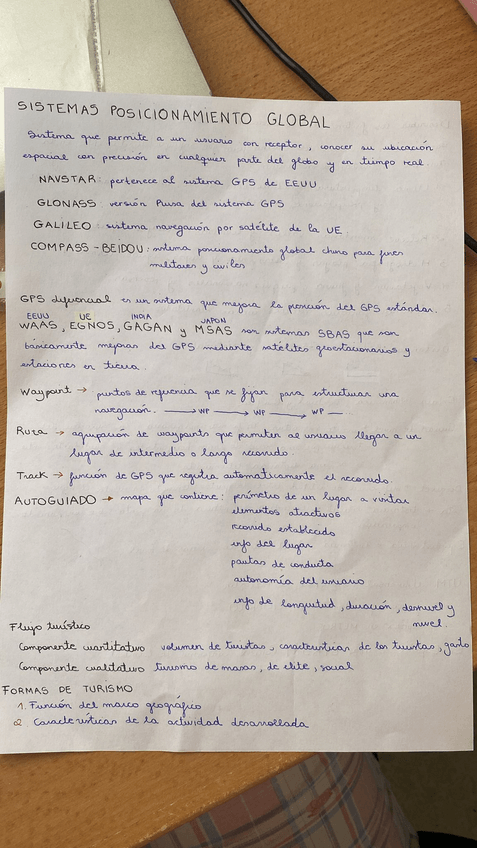 SISTEMAS POSICIONAMIENTO GLOBAL
Sistema que permite a un usuario con receptor, conocer su ubicación
espacial con precisión en cualquier parte del globo y en tiempo real.
NAVSTAR: pertenece al sistema GPS de EEUU
GLONASS: versión Rusa del sistema GPS
GALILEO: sistema navegación por satélite de la UE.
COMPASS - BEIDOU: sistema posicionamiento global chino para fines
militares y civiles
GPS diferencial es un sistema que mejora la posición del GPS estándar.
EEUU UE INDIA JAPON
WAAS, EGNOS, GAGAN y MSAS son sistemas SBAS que son
básicamente mejoras del GPS mediante satélites geoestacionarios y
estaciones en tierra.
Waypoint → puntos de referencia que se fijan para estructurar una
navegación. → WP → WP → WP —
Ruta → agrupación de waypoints que permiten al usuario llegar a un
lugar de intermedio o largo recorrido.
Track → función de GPS que registra automáticamente el recorrido.
AUTOGUIADO → mapa que contiene: perímetro de un lugar a visitar
elementos atractivos
recorrido establecido
info del lugar
pautas de conducta
autonomía del usuario
info de longuitud, duración, desnivel y
nivel.
Flujo turístico
Componente cuantitativo volumen de turistas, características de los turistas, gasto
Componente cualitativo turismo de masas, de elite, social
FORMAS DE TURISMO
1. Función del marco geográfico
2 Características de la actividad desarrollada